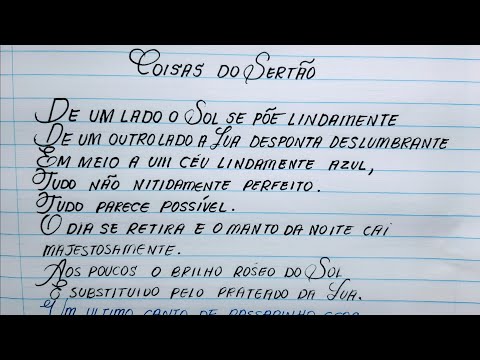 COISAS DO SERTÃO
DE UM LADO O SOL SE PÕE LINDAMENTE
DE UM OUTRO LADO A LUA DESPONTA DESLUMBRANTE
EM MEIO A UM CÉU LINDAMENTE AZUL,
TUDO NÃO NITIDAMENTE PERFEITO.
TUDO PARECE POSSÍVEL.
O DIA SE RETIRA E O MANTO DA NOITE CAI
MAJESTOSAMENTE.
AOS POUCOS O BRILHO RÓSEO DO SOL
É SUBSTITUIDO PELO PRATEADO DA LUA.
UM ULTIMO CANTO DE PASSARINHO